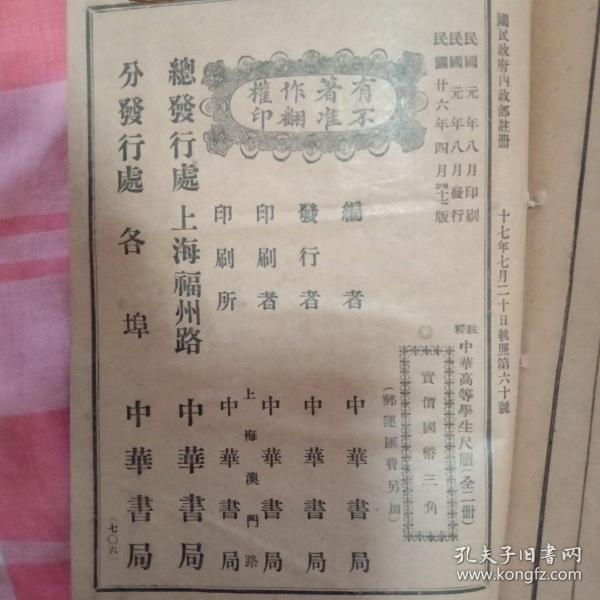 國民政府內政部註冊 十七年七月二十日執照第六十號
民國元年八月印刷
民國元年八月發行
民國廿六年四月四十七版
註釋中華高等學生尺牘(全二冊)
◎實價國幣三角
(郵運匯費另加)
有著作權
不准翻印
編者 中華書局
發行者 中華書局
印刷者 中華書局
上海澳門路
印刷所 中華書局
總發行處 上海福州路 中華書局
分發行處 各埠 中華書局
(七〇六)
孔夫子旧书网
www.kongfz.com